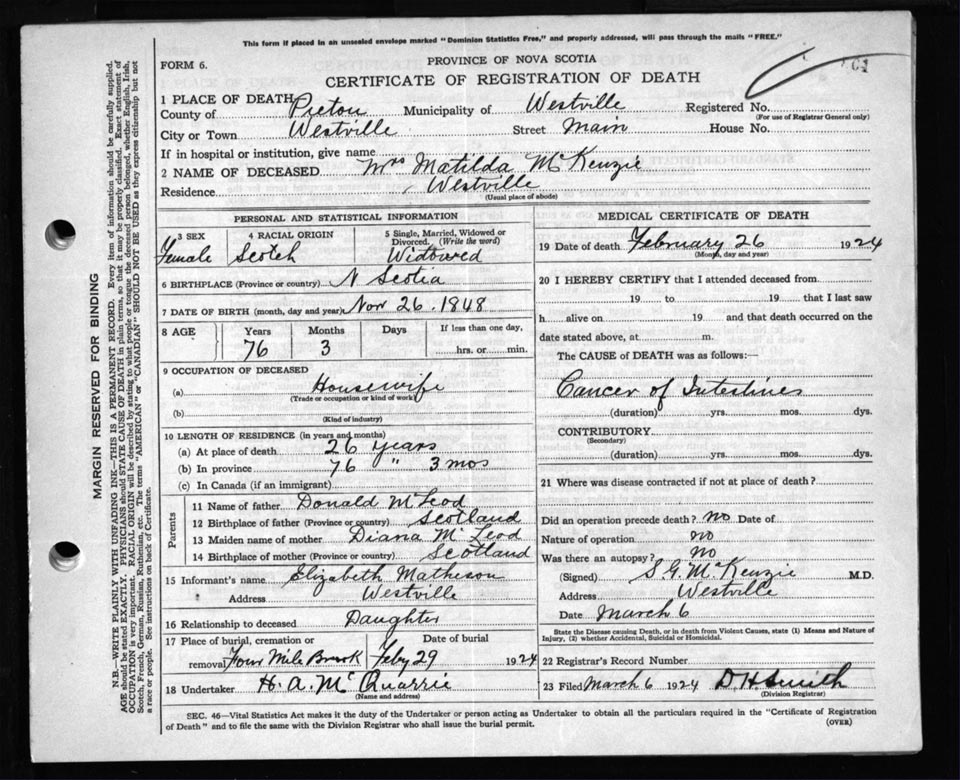 This form if placed in an unsealed envelope marked "Dominion Statistics Free," and properly addressed, will pass through the mails "FREE."
FORM 6.
PROVINCE OF NOVA SCOTIA
CERTIFICATE OF REGISTRATION OF DEATH
1 PLACE OF DEATH
County of Pictou Municipality of Westville Registered No.
(For use of Registrar General only)
City or Town Westville Street Main House No.
If in hospital or institution, give name
2 NAME OF DECEASED Mrs Matilda McKenzie
Residence Westville
(Usual place of abode)
PERSONAL AND STATISTICAL INFORMATION
3 SEX Female
4 RACIAL ORIGIN Scotch
5 Single, Married, Widowed or Divorced. (Write the word) Widowed
6 BIRTHPLACE (Province or country) N Scotia
7 DATE OF BIRTH (month, day and year) Nov 26. 1848
8 AGE Years Months Days If less than one day,
76 3 hrs. or min.
9 OCCUPATION OF DECEASED
(a) Housewife
(Trade or occupation or kind of work)
(b)
(Kind of industry)
10 LENGTH OF RESIDENCE (in years and months)
(a) At place of death 26 years
(b) In province 76 " 3 mos
(c) In Canada (if an immigrant)
Parents
11 Name of father Donald McLeod
12 Birthplace of father (Province or country) Scotland
13 Maiden name of mother Diana McLeod
14 Birthplace of mother (Province or country) Scotland
15 Informant's name Elizabeth Matheson
Address Westville
16 Relationship to deceased Daughter
17 Place of burial, cremation or Date of burial
removal Four Mile Brook Feby 29 1924
18 Undertaker H. A. McQuarrie
(Name and address)
MEDICAL CERTIFICATE OF DEATH
19 Date of death February 26 1924
(Month, day and year)
20 I HEREBY CERTIFY that I attended deceased from
19 to 19 that I last saw
h alive on 19 and that death occurred on the
date stated above, at m.
The CAUSE of DEATH was as follows:—
Cancer of Intestines
(duration) yrs. mos. dys.
CONTRIBUTORY
(Secondary)
(duration) yrs. mos. dys.
21 Where was disease contracted if not at place of death?
Did an operation precede death? no Date of
Nature of operation no
Was there an autopsy? no
(Signed) S G. McKenzie M.D.
Address Westville
Date March 6
State the Disease causing Death, or in death from Violent Causes, state (1) Means and Nature of
Injury, (2) whether Accidental, Suicidal or Homicidal.
22 Registrar's Record Number
23 Filed March 6 1924 D H Smith
(Division Registrar)
SEC. 46—Vital Statistics Act makes it the duty of the Undertaker or person acting as Undertaker to obtain all the particulars required in the "Certificate of Registration
of Death" and to file the same with the Division Registrar who shall issue the burial permit.
(OVER)
MARGIN RESERVED FOR BINDING
N.B.—WRITE PLAINLY WITH UNFADING INK—THIS IS A PERMANENT RECORD. Every item of information should be carefully supplied.
AGE should be stated EXACTLY. PHYSICIANS should STATE CAUSE OF DEATH in plain terms, so that it may be properly classified. Exact statement of
OCCUPATION is very important. RACIAL ORIGIN will be described by stating to what people or tongue the deceased person belonged, whether English, Irish,
Scotch, French, German, Russian, Ruthenian, etc. The terms "AMERICAN" or "CANADIAN" SHOULD NOT BE USED as they express citizenship but not
a race or people. See instructions on back of Certificate.